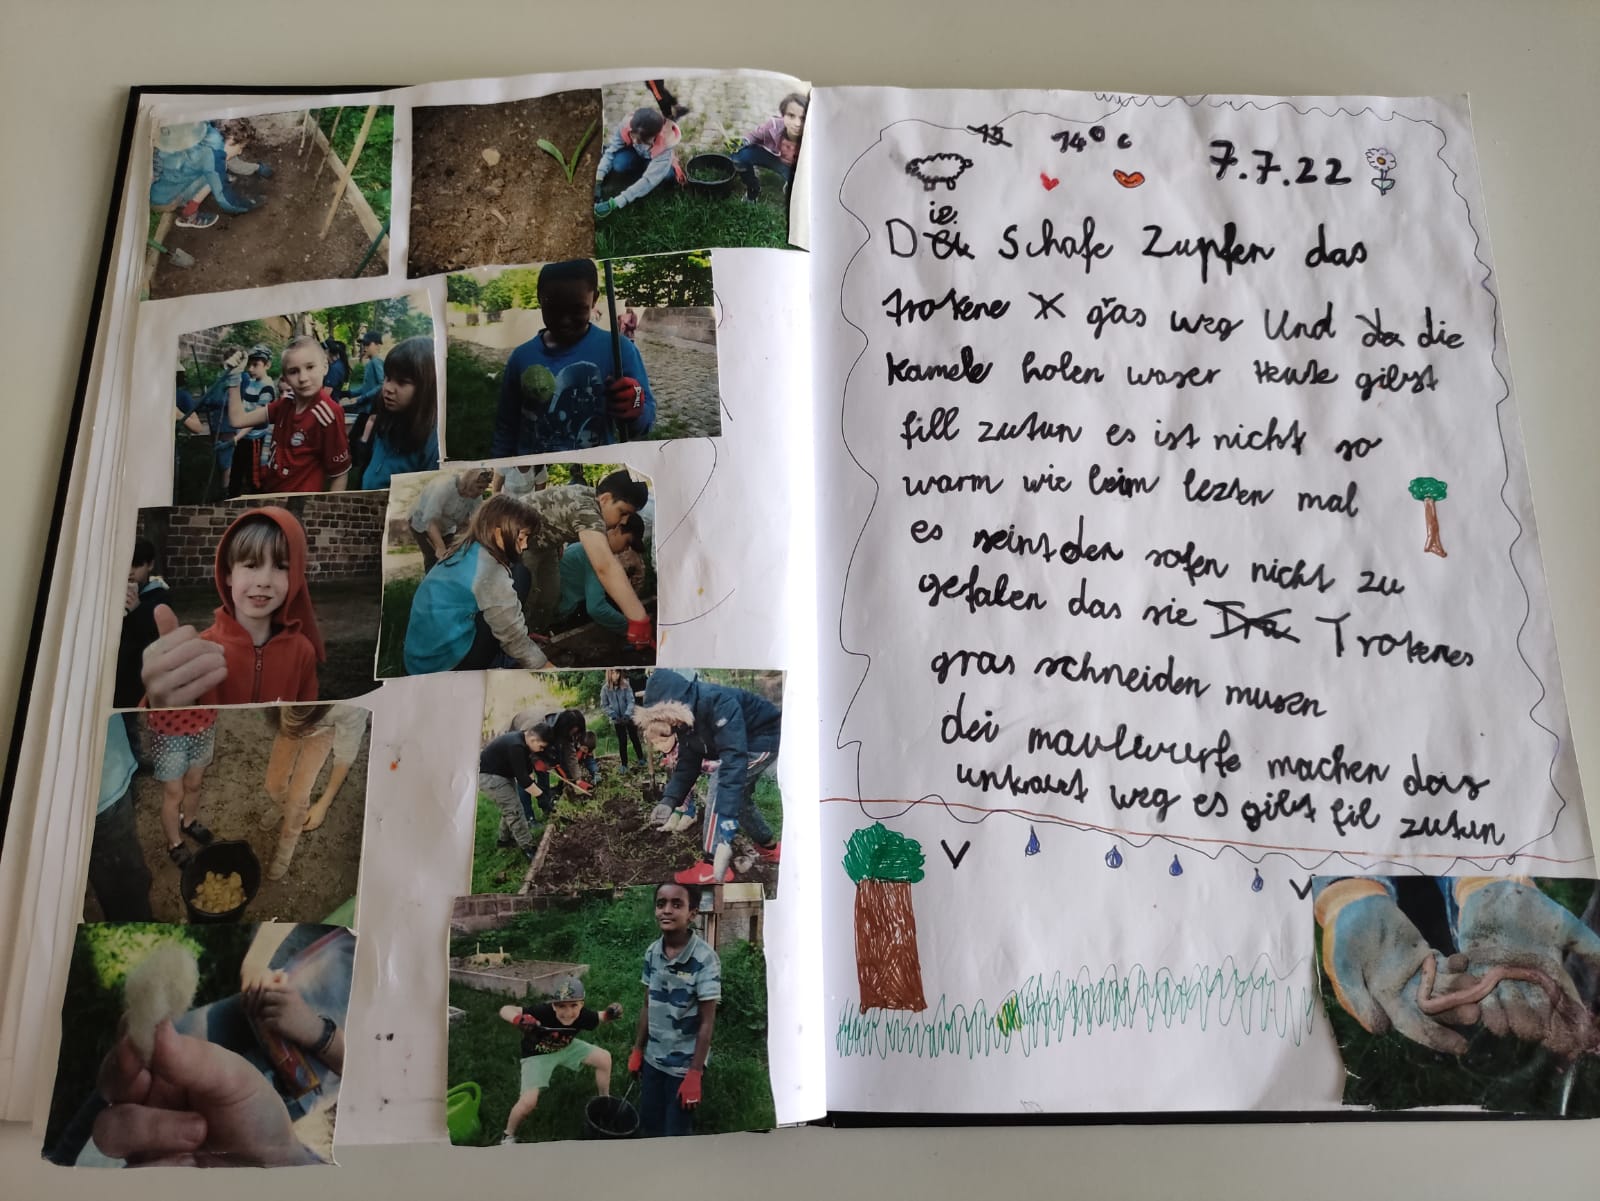 14° c
7.7.22
Die Schafe Zupfen das
trokene gras weg Und die
Kamele holen waser Heute gibst
fill zutun es ist nicht so
warm wie beim lezten mal
es seint den safen nicht zu
gefalen das sie Trokenes
gras schneiden musen
dei maulwurfe machen das
unkraut weg es gibst fil zutun